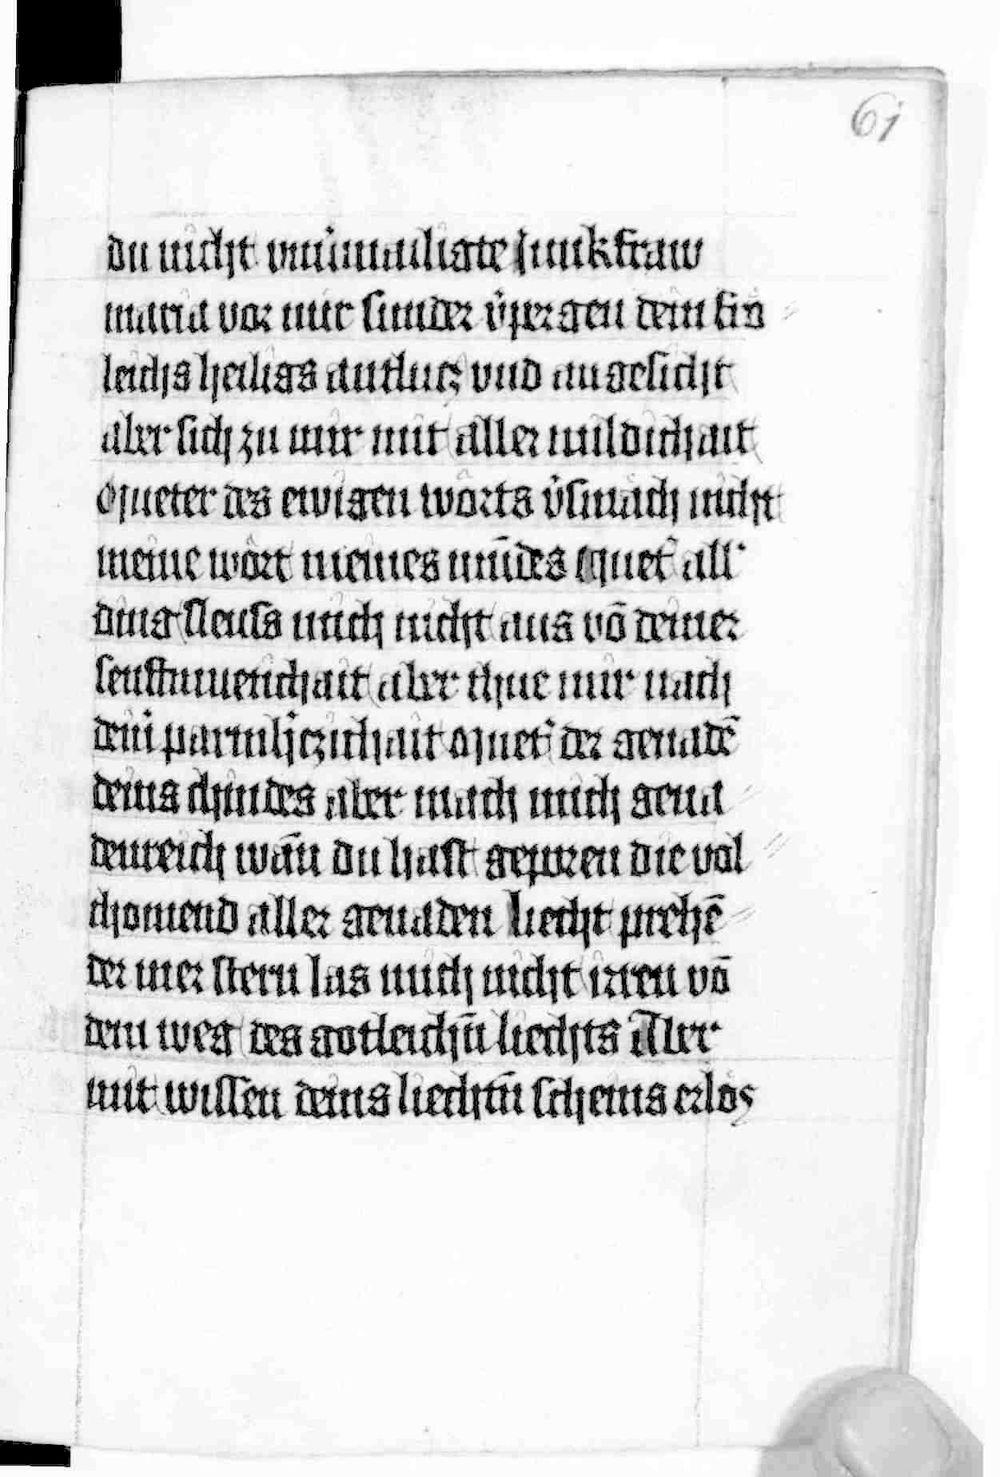 61
du nicht vnuermailigte Junkfraw
maria vor mir sunder v̉pergen dein fro
leichs heiligs antlucz vnd angesicht
aber sich zu mir mit aller mildichait
O mueter des ewigen worts v̉smäch nicht
meine wort meines mu̅des O muet̉ all
ding sleuss mich nicht aus vo̅ deiner
senftmuetichait aber thue mir nach
dein̉ parmh̉czichait O muet̉ der genade̅
deins chindes aber mach mich gena
denreich wan̅ du hast geporen die vol
chomend aller genaden liecht prehe̅
der mer stern las mich nicht irren vo̅
dem weg des gotleichn̅ liechts Aber
mit wissen deins liechtn̅ scheins erlös